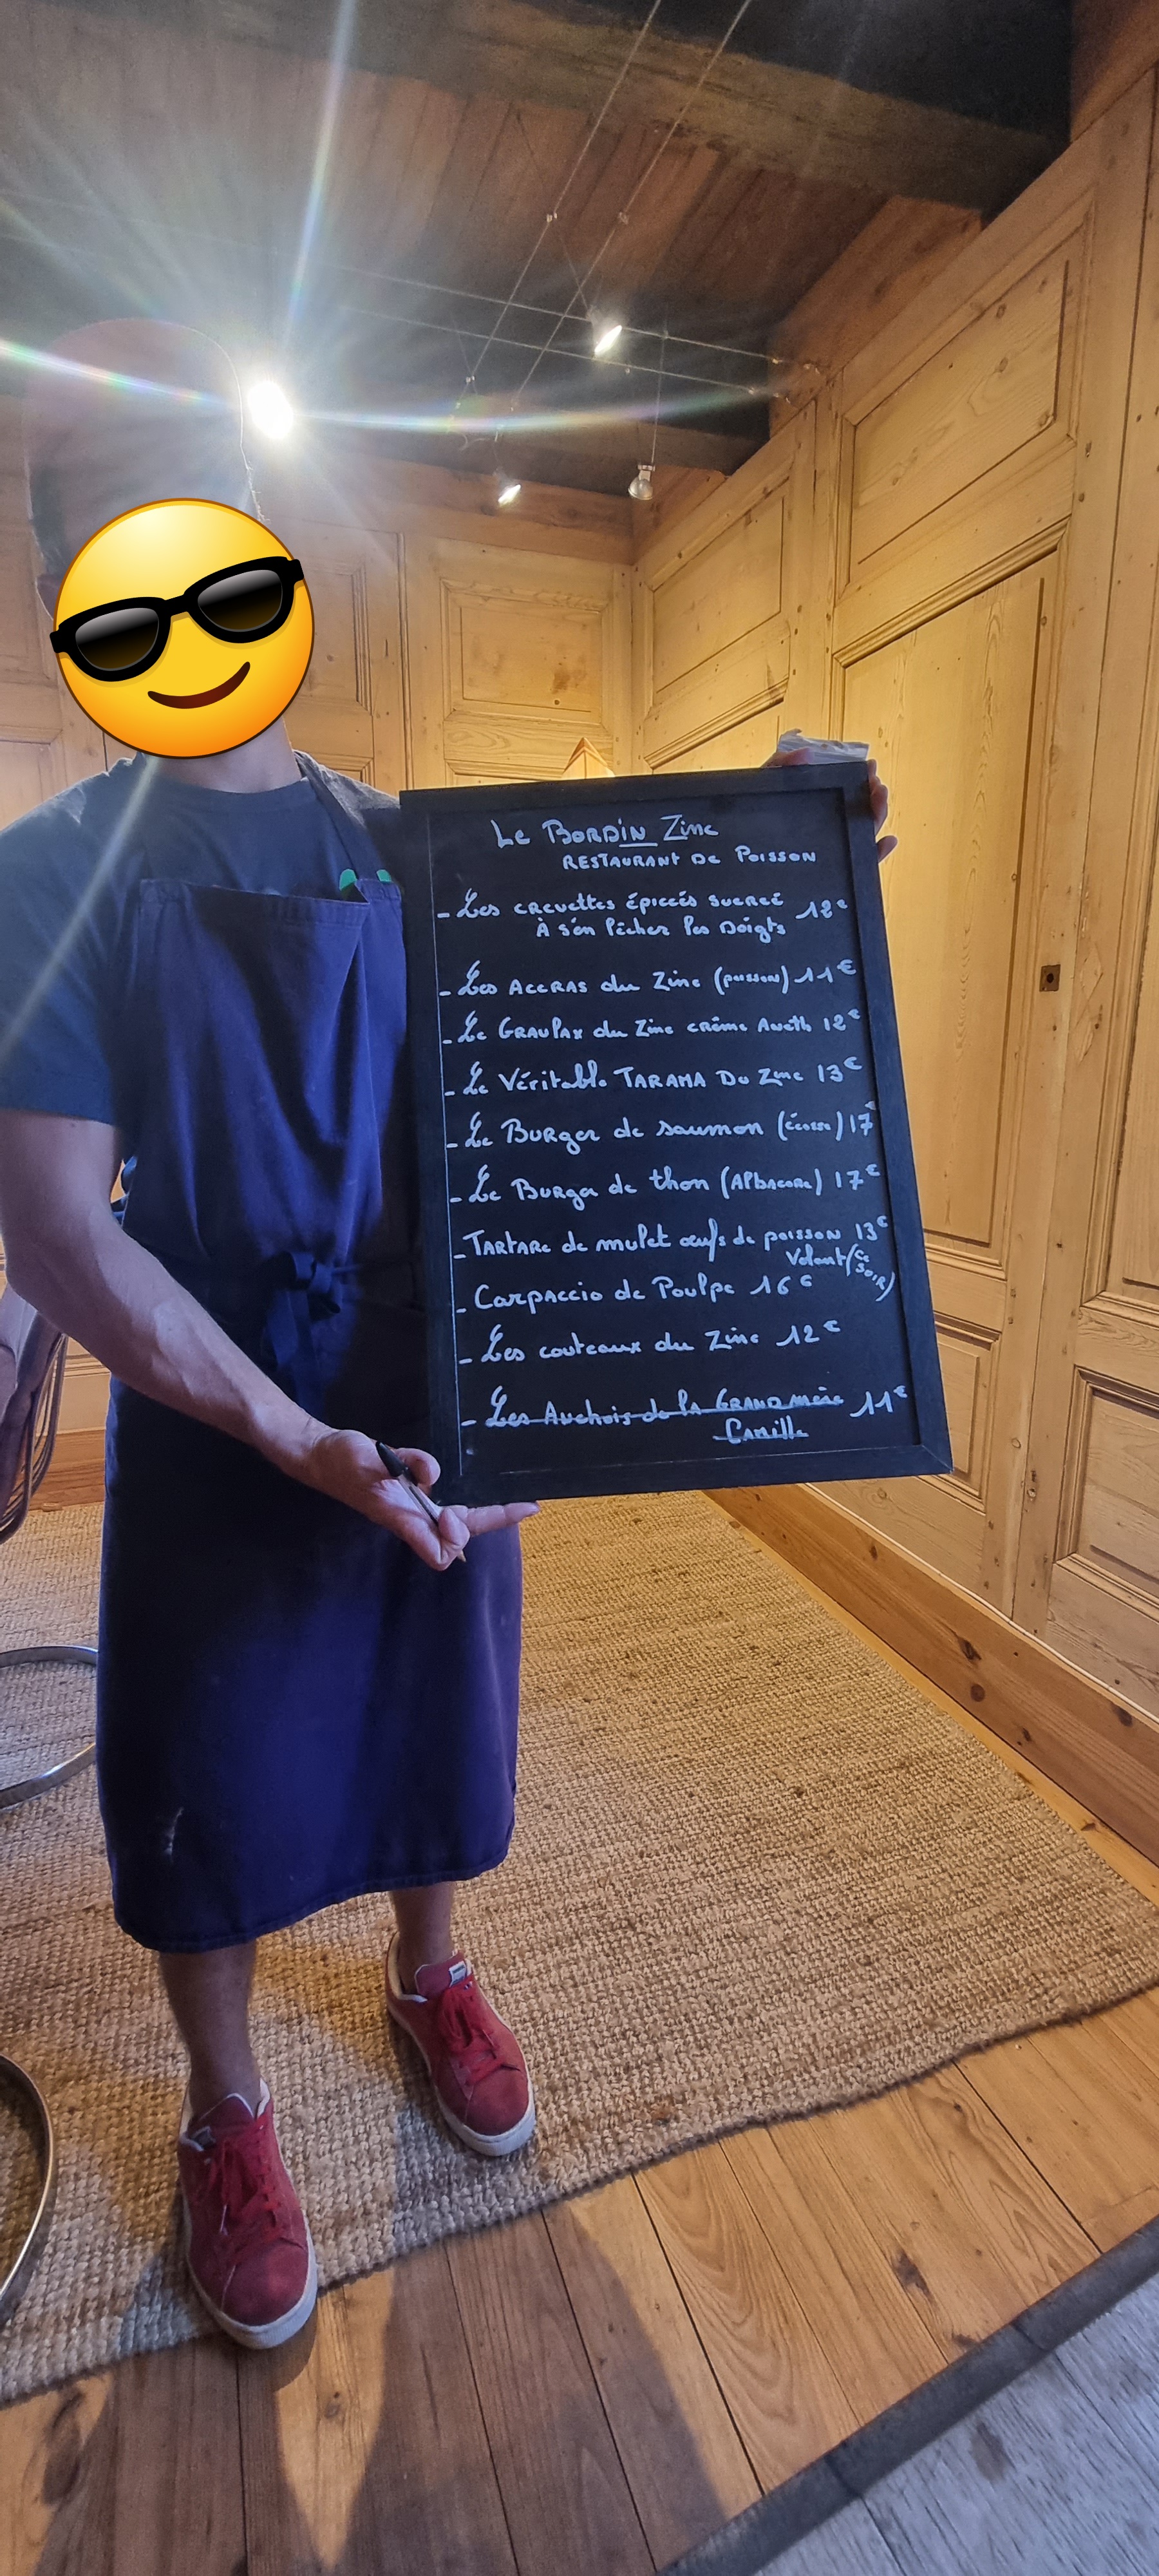 Le BORDIN Zinc
RESTAURANT DE POISSON
- Les crevettes épicées sucreé 12€
À s'en lècher les Doigts
- Les ACCRAS du Zinc (poisson) 11€
- Le GRAVLAX du Zinc crème Aneth 12€
- Le Véritable TARAMA DU Zinc 13€
- Le Burger de saumon (écosse) 17€
- Le Burger de thon (Albacore) 17€
- TARTARE de mulet œufs de poisson 13€
Volant (ce
soir)
- Carpaccio de Poulpe 16€
- Les couteaux du Zinc 12€
- Les Anchois de la GRAND mère 11€
Camille